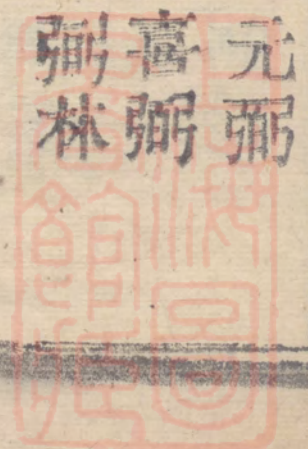 元弼
喜弼
弼林